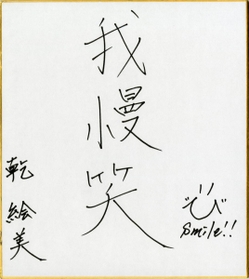 我慢笑
乾絵美
smile!!